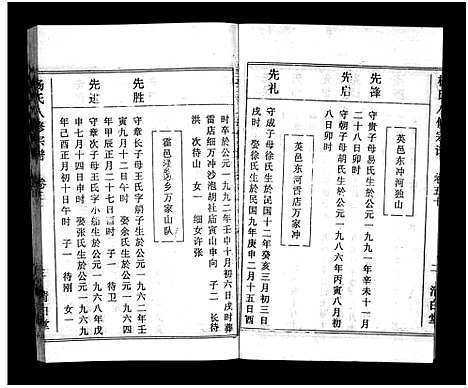 楊氏八修宗譜
卷五十
清白堂
英邑东冲河独山
先锋
守贵子母易氏生於公元一九九一年辛未十一月
二十八日卯时
先启
守朝子母胡氏生於公元一九八六年丙寅八月初
八日卯时
英邑东河雷店万家冲
先礼
守成子母徐氏生於民国十二年癸亥三月初三日
戌时 娶徐氏生於民国九年庚申二月十五日酉
时卒於公元一九九二年壬申十月初六日戌时葬
雷店细万冲沙泡胡社庙寅山申向 子二 长待
洪 次待山 女一 细女许张
万家山队
先胜
守章长子母王氏字
生於公元一九六二年壬
寅九月十二日午时 娶余氏生於公元一九六四
年甲辰三月二十日午时 子一 待卫
先进
守章次子母王氏字小
生於公元一九六八年戊
申七月十四日申时 娶张氏生於公元一九六九
年己酉正月初十日午时 子一 待刚 女一
杨氏八修宗谱
清白堂